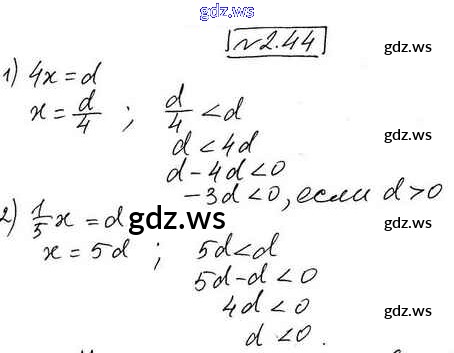 gdz.ws
№2.44
gdz.ws
1) 4x = d
x = d/4 ; d/4 < d
d < 4d
gdz.ws
d - 4d < 0
-3d < 0, если d > 0
2) 1/5 x = d
gdz.ws
gdz.ws
x = 5d ; 5d < d
5d - d < 0
4d < 0
gdz.ws
d < 0.